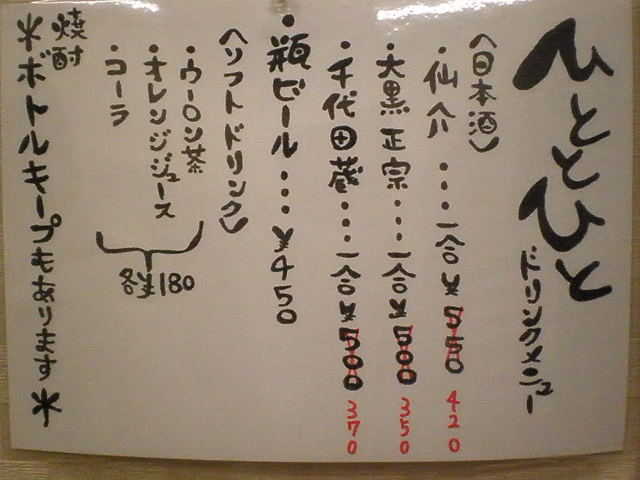 ひととひと
ドリンクメニュー
〈日本酒〉
・仙介・・・一合¥550 420
・大黒正宗・・・一合¥500 350
・千代田蔵・・・一合¥500 370
・瓶ビール・・・¥450
〈ソフトドリンク〉
・ウーロン茶
・オレンジジュース
・コーラ
各¥180
焼酎
＊ボトルキープもあります＊